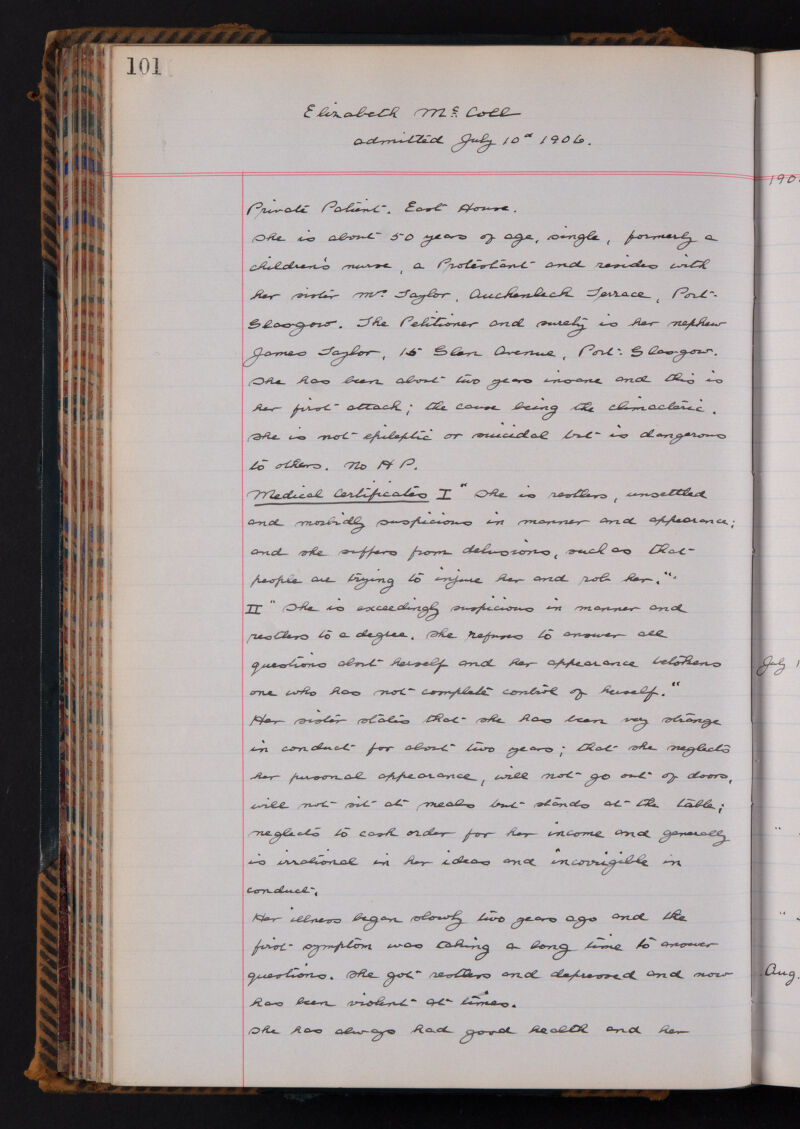 101
Elizabeth McColl
admitted July 10th 1906.
190
Private Patient. East House.
She is about 50 years of age, single, formerly a
children's nurse, a Protestant and resides with
her sister Mrs Taylor, Auchenleck Terrace, Port-
Glasgow. The Petitioner and surety is her nephew
James Taylor, 15 Glen Avenue, Port-Glasgow.
She has been about two years insane and this is
her first attack; the cause being the climacteric.
She is not epileptic or suicidal but is dangerous
to others. No H P.
Medical Certificates I "She is restless, unsettled
and morbidly suspicious in manner and appearance;
and she suffers from delusions, such as that
people are trying to injure her and rob her."
II "She is exceedingly suspicious in manner and
restless to a degree. She refuses to answer all
questions about herself and her appearance betokens
one who has not complete control of herself."
Her sister states that she has been very strange
in conduct for about two years; that she neglects
her personal appearance, will not go out of doors,
will not sit at meals but stands at the table;
neglects to cash order for her income and generally
is irrational in her ideas and incorrigible in
conduct.
Her illness began slowly two years ago and the
first symptom was taking a long time to answer
questions. She got restless and depressed and now
has been violent at times.
She has always had good health and her
July 1
Aug.